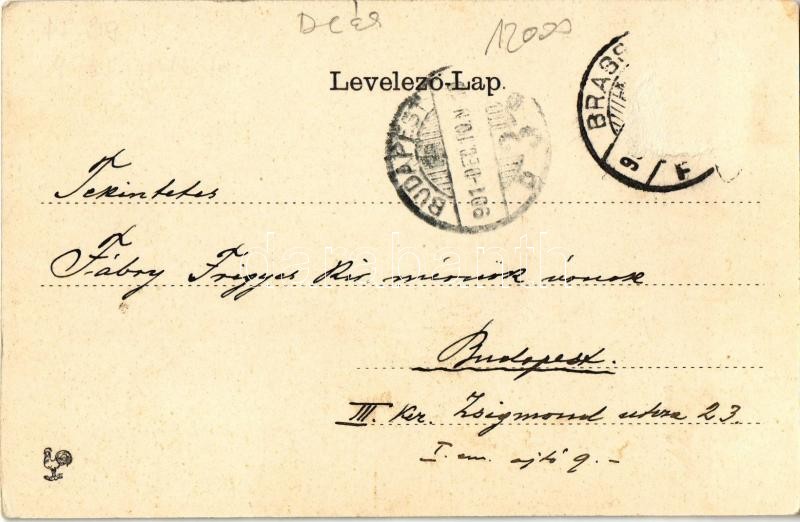 12000
Levelező-Lap.
BUDAPEST
901 DEZ. 10. N
BRASS
Tekintetes
Fábry Frigyes kir mérnok úrnak
Budapest.
III. Ker. Zsigmond utcza 23.
I. em. ajtó 9.-